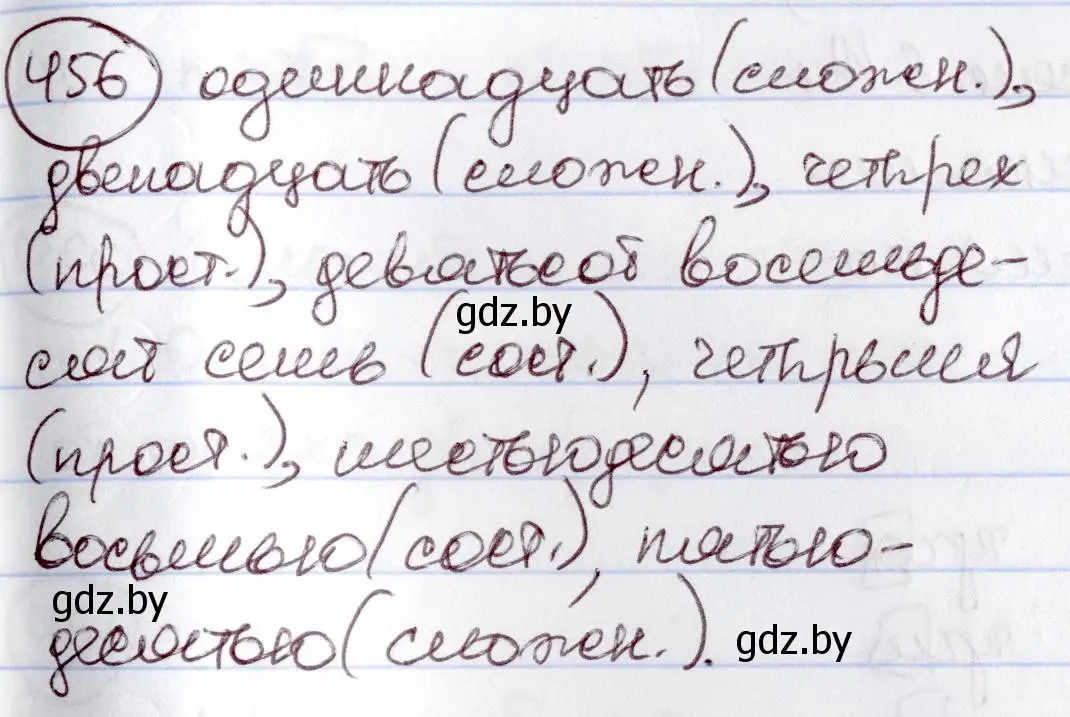 456 одиннадцать (сложен.),
двенадцать (сложен.), четырех
(прост.), девятьсот восемьде-
сят семь (сост.), четырьмя
(прост.), шестьюдесятью
восьмью (сост.), пятью-
десятью (сложен.).
gdz.by
gdz.by
gdz.by